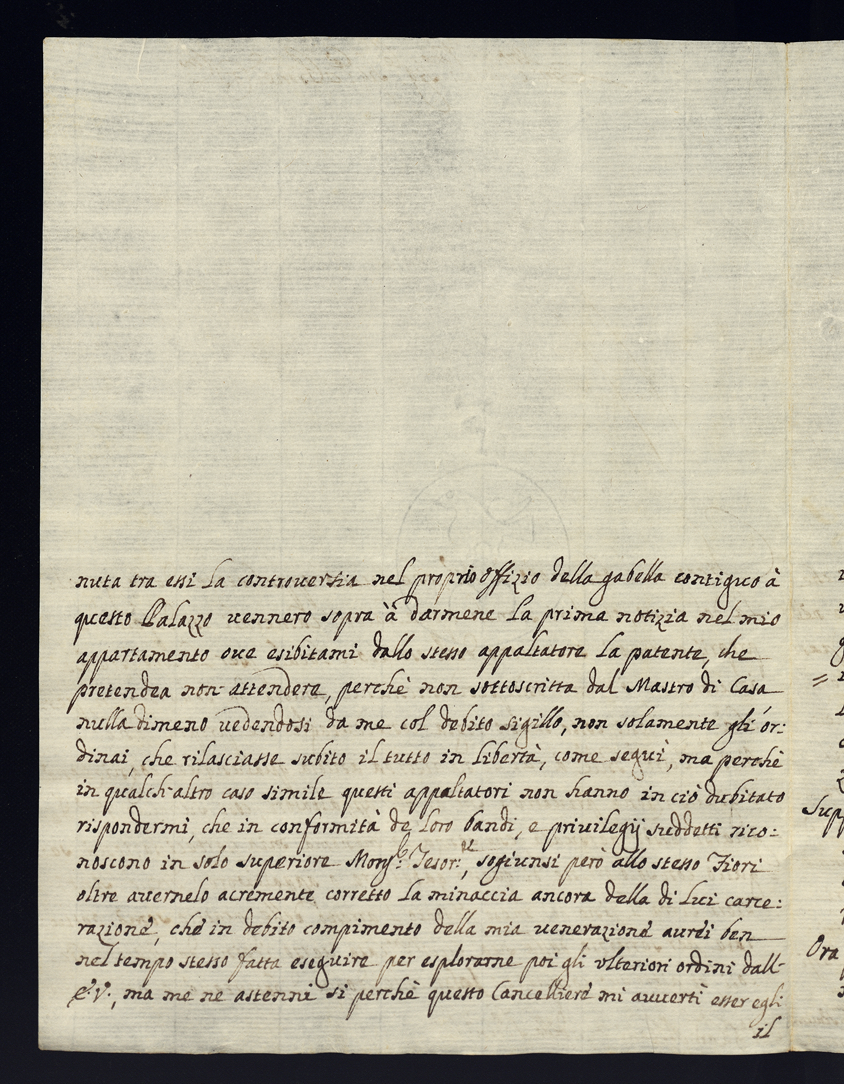 nuta tra essi la controversia nel proprio offizio della gabella contiguo à
questo Palazzo vennero sopra à darmene la prima notizia nel mio
appartamento ove esibitami dallo stesso appaltatore la patente, che
pretendea non attendere, perchè non sottoscritta dal Mastro di Casa
nulla dimeno vedendosi da me col debito sigillo, non solamente gli or:
dinai, che rilasciasse subito il tutto in libertà, come seguì, ma perchè
in qualch'altro caso simile questi appaltatori non hanno in ciò dubitato
rispondermi, che in conformità de loro bandi, e privilegij suddetti rico:
noscono in solo superiore Monsr.e Tesor.re, sogiunsi però allo stesso Fiori
oltre avernelo acremente corretto la minaccia ancora della di lui carce:
razione, che in debito compimento della mia venerazione avrei ben
nel tempo stesso fatta eseguire per esplorarne poi gli ulteriori ordini dall'
E.V., ma me ne astenni si perchè questo Cancelliere mi avvertì esser egli
il
Ora